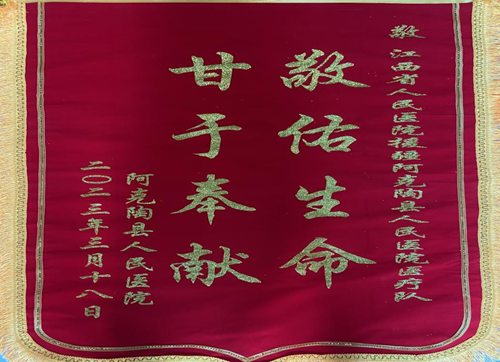 敬 江西省人民医院援疆阿克陶县人民医院医疗队
敬佑生命
甘于奉献
阿克陶县人民医院
二〇二三年三月十八日